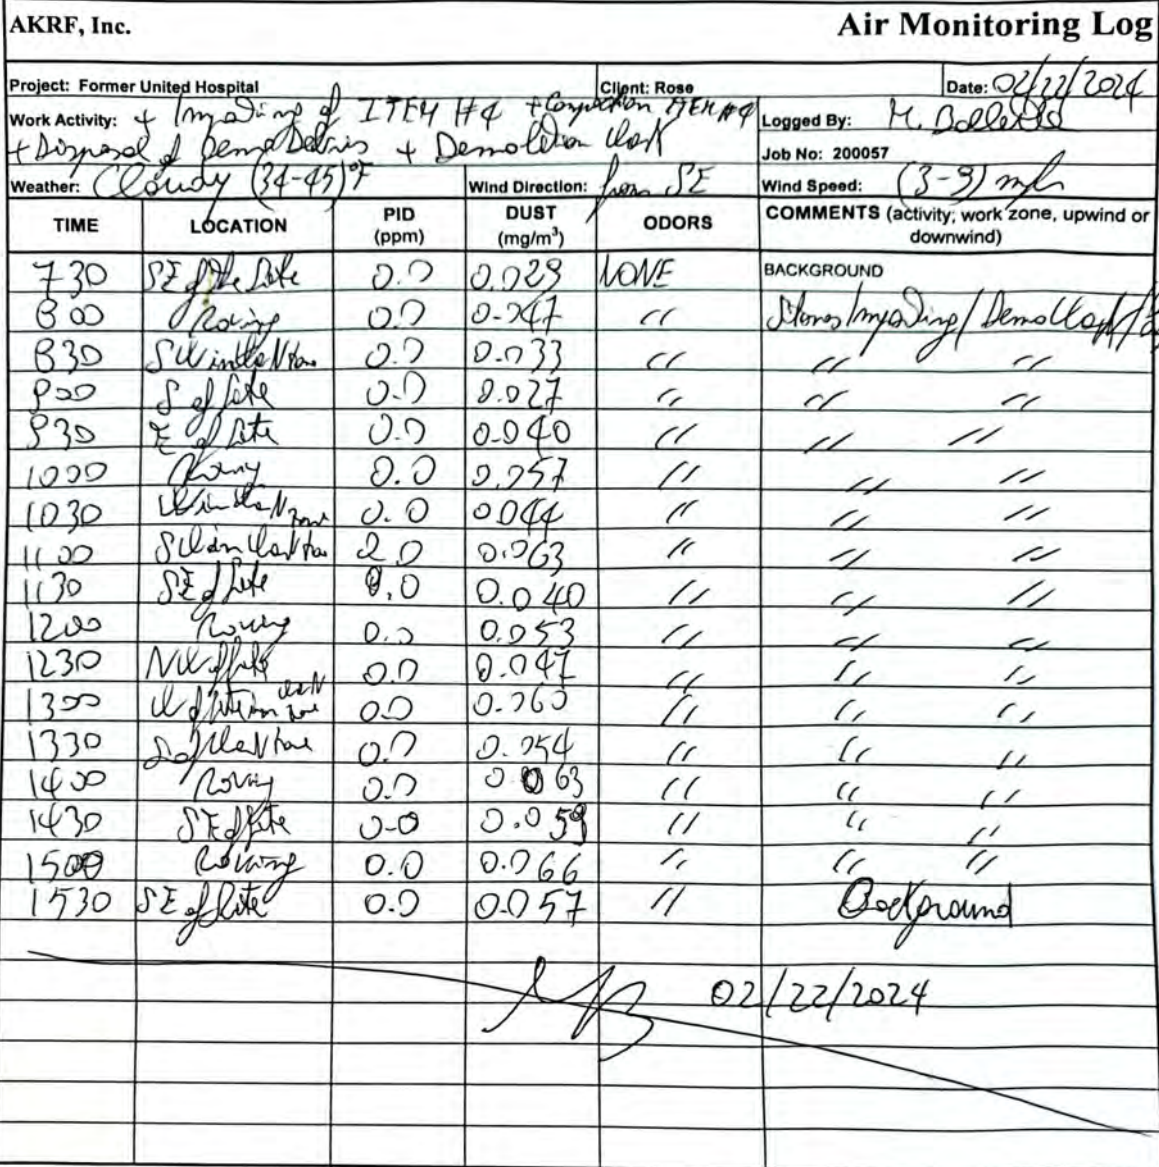 AKRF, Inc. Air Monitoring Log
Project: Former United Hospital Client: Rose Date: 02/22/2024
Work Activity: + Importing of ITEM #4 + Compaction ITEM #4 Logged By: M.
+ Disposal of Demo Debris + Demolition Work Job No: 200057
Weather: Cloudy (34-45)°F Wind Direction: from SE Wind Speed: (3-9) mph
TIME LOCATION PID (ppm) DUST (mg/m³) ODORS COMMENTS (activity; work zone, upwind or downwind)
730 SE of the Site 0.0 0.029 NONE BACKGROUND
800 Roving 0.0 0.047 " Stones Importing/Demo Work/
830 SW in Work Zone 0.0 0.033 " " "
900 S of Site 0.0 0.027 " " "
930 E of Site 0.0 0.040 " " "
1000 Roving 0.0 0.057 " " "
1030 W in Work Zone 0.0 0.044 " " "
1100 SW in Work Zone 0.0 0.063 " " "
1130 SE of Site 0.0 0.040 " " "
1200 Roving 0.0 0.053 " " "
1230 NW of Site 0.0 0.047 " " "
1300 W of Site in Work Zone 0.0 0.060 " " "
1330 S of Work Zone 0.0 0.054 " " "
1400 Roving 0.0 0.063 " " "
1430 SE of Site 0.0 0.059 " " "
1500 Roving 0.0 0.066 " " "
1530 SE of Site 0.0 0.057 " Background
MB 02/22/2024